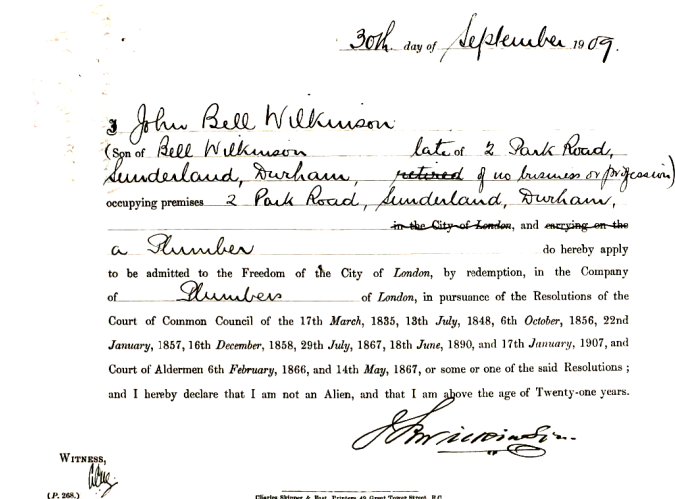 30th day of September 1909.
I John Bell Wilkinson
(Son of Bell Wilkinson late of 2 Park Road,
Sunderland, Durham, retired of no business or profession)
occupying premises 2 Park Road, Sunderland, Durham,
in the City of London, and carrying on the
a Plumber do hereby apply
to be admitted to the Freedom of the City of London, by redemption, in the Company
of Plumbers of London, in pursuance of the Resolutions of the
Court of Common Council of the 17th March, 1835, 13th July, 1848, 6th October, 1856, 22nd
January, 1857, 16th December, 1858, 29th July, 1867, 18th June, 1890, and 17th January, 1907, and
Court of Aldermen 6th February, 1866, and 14th May, 1867, or some or one of the said Resolutions ;
and I hereby declare that I am not an Alien, and that I am above the age of Twenty-one years.
J B Wilkinson
WITNESS,
(P. 268.)
Charles Skipper & East, Printers, 49, Great Tower Street, E.C.